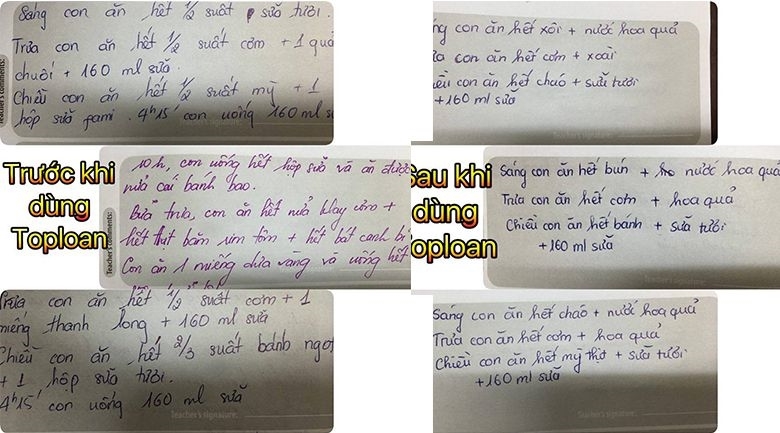 Sáng con ăn hết 1/2 suất sữa tươi.
Trưa con ăn hết 1/2 suất cơm + 1 quả
chuối + 160 ml sữa.
Chiều con ăn hết 1/2 suất mỳ + 1
hộp sữa fami. 4h15' con uống 160 ml s
Teacher's comments:
Trước khi
dùng
Toploan
10h, con uống hết hộp sữa và ăn được
nửa cái bánh bao.
Bữa trưa, con ăn hết nửa khay cơm +
hết thịt băm rim tôm + hết bát canh bí
Con ăn 1 miếng dưa vàng và uống hết
Teacher's comments:
Trưa con ăn hết 1/2 suất cơm + 1
miếng thanh long + 160 ml sữa
Chiều con ăn hết 2/3 suất bánh ngọt
+ 1 hộp sữa tươi.
4h15' con uống 160 ml sữa
Teacher's signature:
ng con ăn hết xôi + nước hoa quả
a con ăn hết cơm + xoài
iều con ăn hết cháo + sữa tươi
+160 ml sữa
Sau khi
dùng
oploan
Sáng con ăn hết bún + nước hoa quả
Trưa con ăn hết cơm + hoa quả
Chiều con ăn hết bánh + sữa tươi
+160 ml sữa
Sáng con ăn hết cháo + nước hoa quả
Trưa con ăn hết cơm + hoa quả
Chiều con ăn hết mỳ thịt + sữa tươi
+160 ml sữa
Teacher's signature: